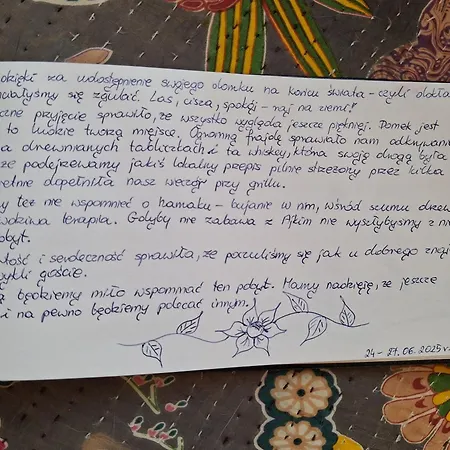 dzięki za udostępnienie swojego domku na końcu świata – czyli dokła
wałyśmy się zgubić. Las, cisza, spokój – raj na ziemi!
czne przyjęcie sprawiło, że wszystko wygląda jeszcze piękniej. Domek jest
to ludzie tworzą miejsca. Ogromną frajdę sprawiało nam odkrywanie
a drewnianych tabliczkach i ta whiskey, która swoją drogą była
że podejrzewamy jakiś lokalny przepis pilnie strzeżony przez kilka
etnie dopełniła nasz wieczór przy grillu.
y też nie wspomnieć o hamaku – bujanie w nim, wśród szumu drzew
wdziwa terapia. Gdyby nie zabawa z Ajkim nie wyszłybyśmy z ni
pobyt.
łość i serdeczność sprawiła, że poczuliśmy się jak u dobrego znaj
zwykli goście.
ą będziemy miło wspominać ten pobyt. Mamy nadzieję, że jeszcze
i na pewno będziemy polecać innym.
24 – 27.06.2025 r.